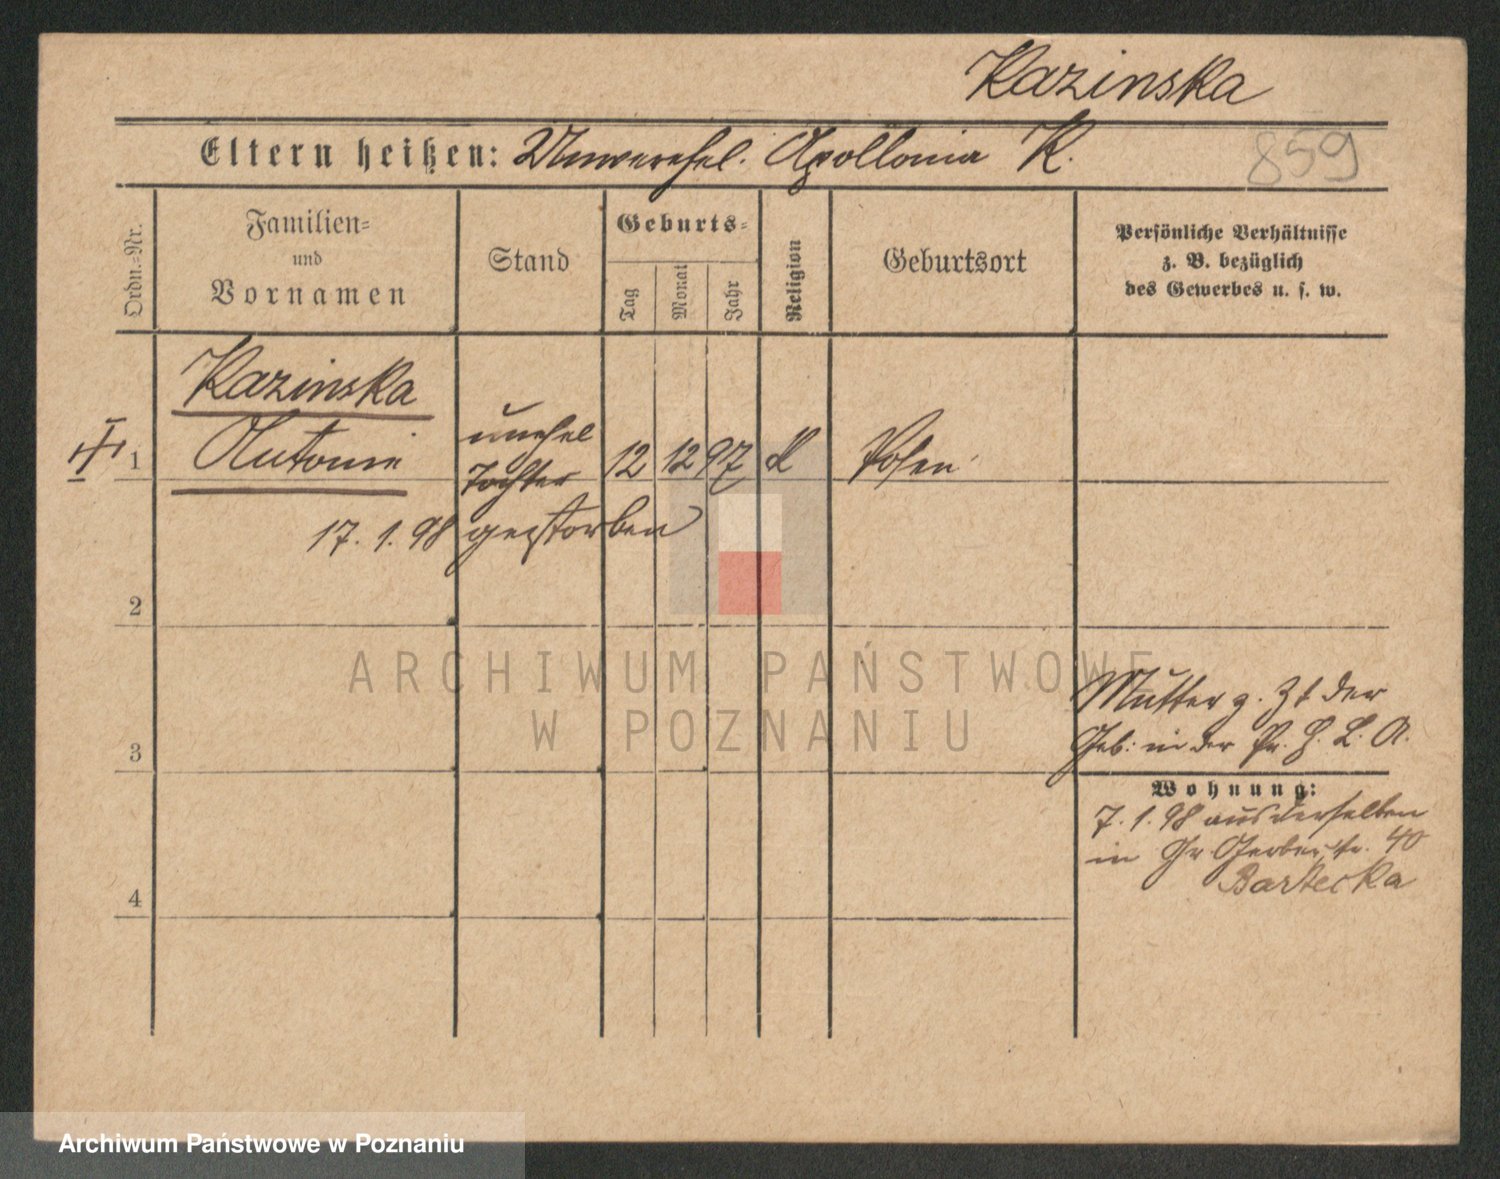 Kazinska
Eltern heißen: Unverehel. Apollonia K.
859
Ordn.-Nr.
Familien-
und
Vornamen
Stand
Geburts-
Tag
Monat
Jahr
Religion
Geburtsort
Persönliche Verhältnisse
z. B. bezüglich
des Gewerbes u. s. w.
Kazinska
1 Antonie
unehel
Tochter
12 12 97 K Posen
17. 1. 98 gestorben
2
ARCHIWUM PAŃSTWOWE
W POZNANIU
3
Mutter z. Zt der
Geb: in der Pr. H. L. A.
Wohnung:
7. 1. 98 aus derselben
in Gr Gerberstr. 40
Bartecka
4
Archiwum Państwowe w Poznaniu